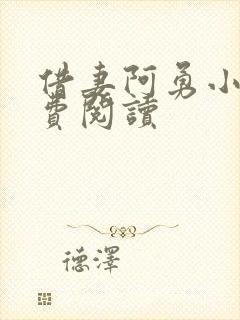 借妻阿勇小
費閱讀
德澤